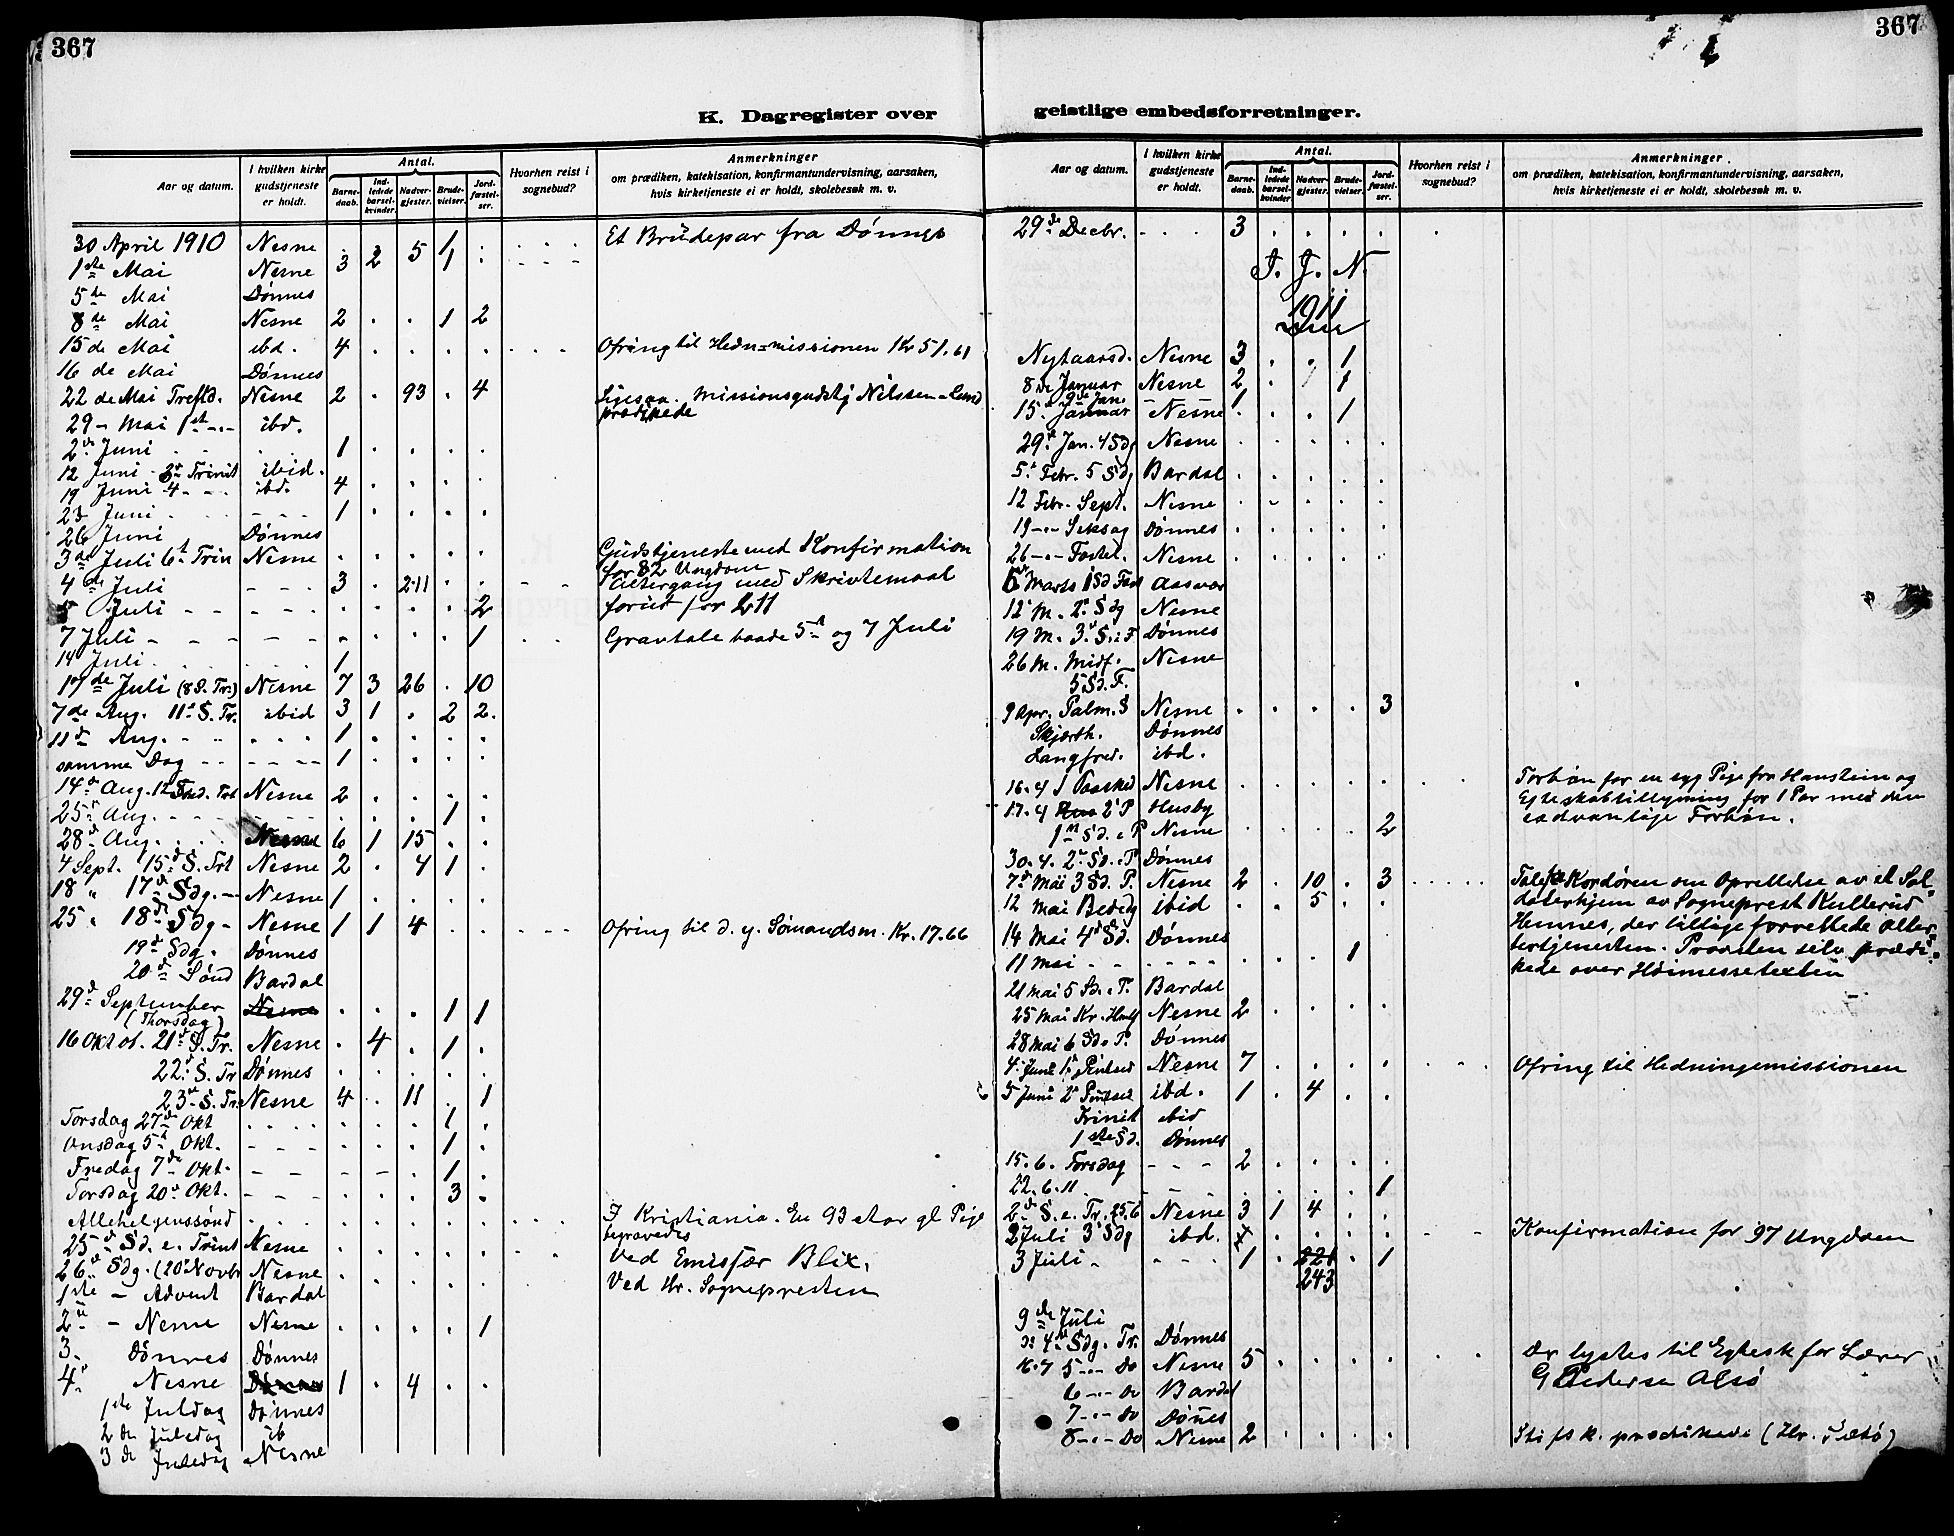 367
367
K. Dagregister over geistlige embedsforretninger.
Aar og datum. I hvilken kirke gudstjeneste er holdt. Antal. Barnedaab. Indledede barselkvinder. Nadvergjester. Brudevielser. Jordfæstelser. Hvorhen reist i sognebud? Anmerkninger om prædiken, katekisation, konfirmantundervisning, aarsaken, hvis kirketjeneste ei er holdt, skolebesøk m. v.
30 April 1910 Nesne . . 5 1 . . . . Et Brudepar fra Dønnes
1ste Mai Nesne 3 2 1 . - - -
5de Mai Dønnes
8de Mai Nesne 2 . . 1 2
15de Mai ibd. 4 . . . . . . . Ofring til Hedn=missionen Kr 51.61
16de Mai Dønnes
22 de Mai Trefld. Nesne 2 . 93 . 4 Ligesaa. Missionsgudstj Nilssen-Lund
prædikede
29 - Mai 1st - " - ibd.
2de Juni 1 . . . .
12 Juni - 3d Trinit ibid.
19 Juni 4 - - - ibd. 4 . . . .
23 Juni 1 . . . .
26 Juni Dønnes
3de Juli 6t Trin Nesne . . . . . Gudstjeneste med Konfirmation
for 82 Ungdom
4de Juli - - - 3 . 211 . . - - Altergang med Skriftemaal
5 Juli - - - - . . . . 2 forut for 211
7 Juli - - - - . . . . 1 . . Gravtale baade 5t og 7 Juli
14 Juli . . . . 1
17de Juli (8 S. Tr.) Nesne 7 3 26 . 10
7de Aug. 11t S. Tr. ibid 3 1 . 2 2.
11te Aug. - - . . . 1 . . . .
samme Dag - - - - - 1 . . . .
14de Aug. 12 Trt Nesne 2 . . . .
25 Aug. - - - - . . . 1 .
28d Aug. . . . Nesne 6 1 15 . .
4 Sept. 15d S. Trt Nesne 2 . 4 1 .
18 " 17d Sdg. - Nesne 1 . . . .
25 " 18d Sdg - Nesne 1 1 4 . . . - - - Ofring til d. y. Sømandsm. Kr. 17.66
19d Sdg. Dønnes
20d Sønd Bardal
29d September Nesne . . . 1 1
(Thorsdag)
16 Oktob. 21d S. Tr. Nesne . 4 . 1 .
22d S. Tr Dønnes . . . . .
23d S. Tr. Nesne 4 . 11 . 1
Torsdag 27d Okt . . . . . . . 1 .
Onsdag 5t Okt. - - - - . . . 1 .
Fredag 7de Okt. - - - - - . 1 .
Torsdag 20d Okt. - - - . . . 3 .
Allehelgenssønd . . . . . . . . . . . I Kristiania. En 93 aar gl Pige
begravedes
25d Sd. e. Trint Nesne . . . . . . . Ved Emissær Blix.
26d Sdg. (20 Novbr Nesne . . . . . Ved Hr. Sognepresten
1ste - Advent Bardal
2 - Nesne Nesne . . . . 1
3. Dønnes Dønnes
4. Nesne Dønnes 1 . 4 . .
1ste Juldag Dønnes
2 de Juledag ib
3 de Juledag Nesne
Aar og datum. I hvilken kirke gudstjeneste er holdt. Antal. Barnedaab. Indledede barselkvinder. Nadvergjester. Brudevielser. Jordfæstelser. Hvorhen reist i sognebud? Anmerkninger om prædiken, katekisation, konfirmantundervisning, aarsaken, hvis kirketjeneste ei er holdt, skolebesøk m. v.
29de Decbr. - . . . 3 . . . . .
I. J. N.
1911
Nytaarsd. Nesne 3 . . 1
8de Januar Nesne 2 . 1
9de Jan. 1
15. Januar - Nesne . . . 1
29d Jan. 4 Sdg Nesne . . . . .
5t Febr. 5 Sdg Bardal . . . . .
12 Febr. Sept. Nesne . . . . .
19 -"- Seksag Dønnes . . . . .
26 -"- Fastel. Nesne . . . . .
Marts 1 Sd Fast Aasvær
12 M. 2d Sdg Nesne
19 M. 3d S. i F Dønnes
26 M. Midf. Nesne
5 Sd. F.
9 Apr. Palm. S Nesne . . . . 3
Skjærth. Dønnes
Langfred. ibd.
16.4 1 Paasked Nesne . . . . . . . Forbøn for en syg Pige fra Hanstein og
17.4 2 P Husby Egteskabtillysning for 1 Par med den
1ste Sd. e P Nesne . . . . 2 sedvanlige Forbøn.
30.4. 2. Sd. e. P. Dønnes
7de Mai 3 Sd. P. Nesne 2 . 10 . 3 . . . . . Tale fra Kordøren om Oprettelse av et Sol-
12 Mai Bededg ibid . . 5 . . daterhjem av Sogneprest Kullerud
14 Mai 4d Sd. Dønnes Hemnes, der tillige forrettede Alter-
11 Mai - - - - - - . . . 1 tertjenesten. Provsten selv prædi-
21 Mai 5 Sd. e. P. Bardal kede over Høimessetexten
25 Mai Kr. Himlf Nesne 2 . . . .
28 Mai 6 Sd. P. Dønnes
4. Juni 1d Pintsed Nesne 7 . . . . . . Ofring til Hedningemissionen
5 Juni 2d Pintsed ibd. 1 . 4 . .
Trinit ibid
1ste Sd. Dønnes
15.6. Torsdag - - - 2 . . . .
22.6.11 . . . . 1
2d S. e. Tr. 25.6 Nesne 3 1 4 . .
2 Juli 3d Sdg ibd. . . . . - - Konfirmation for 97 Ungdom
3 Juli - - - - 1 . 221 . 1
243
9de Juli
4de Sdg. Tr. Dønnes
16.7 5 -"- Do Nesne 5 . . . . . . Der lystes til Egtesk for Lærer
6 -"- do Bardal G Pedersen Alsø
7 -"- Do Dønes
8 -"- Do Nesne 2 . . . . Stifsk. prædikede (Hr. )